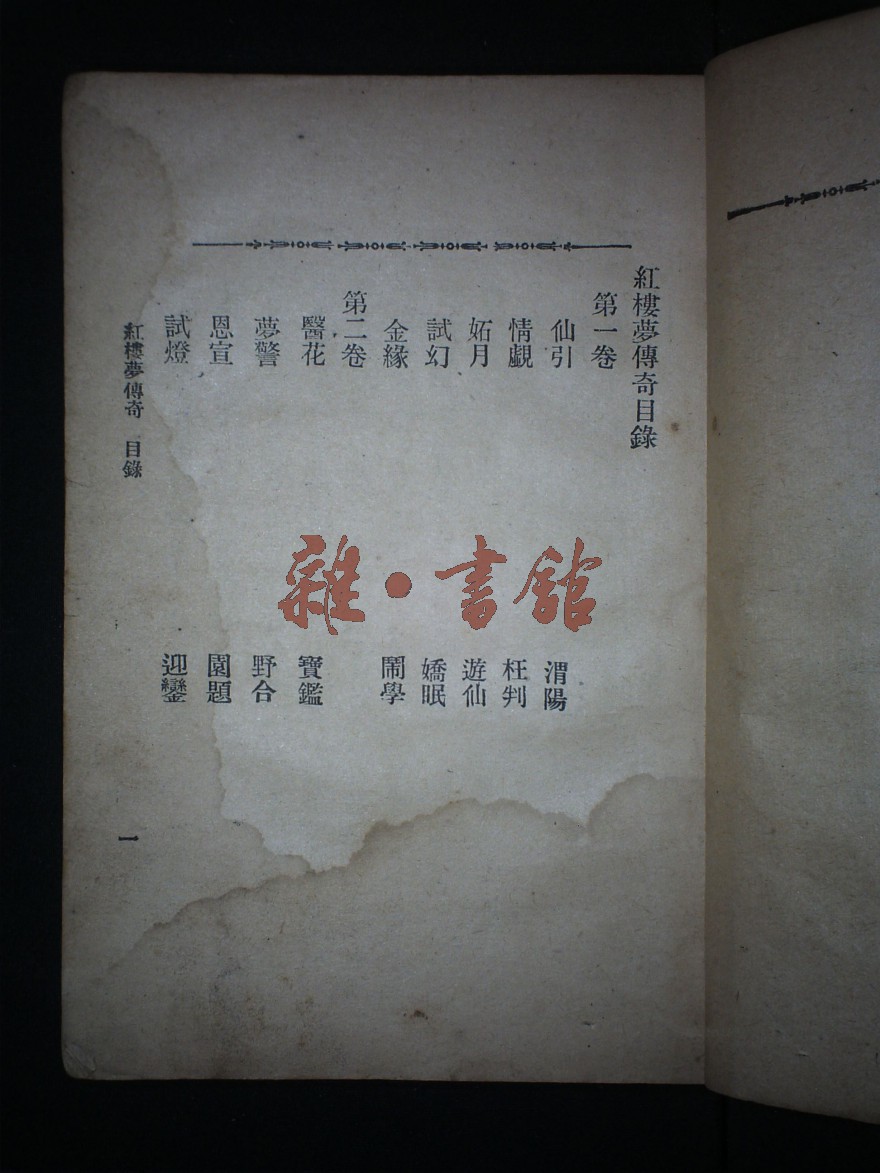 紅樓夢傳奇目錄
第一卷
仙引 渭陽
情覷 枉判
妬月 遊仙
試幻 嬌眠
金緣 鬧學
第二卷
醫花 寶鑑
夢警 野合
恩宣 園題
試燈 迎鑾
紅樓夢傳奇 目錄
一
雜·書館